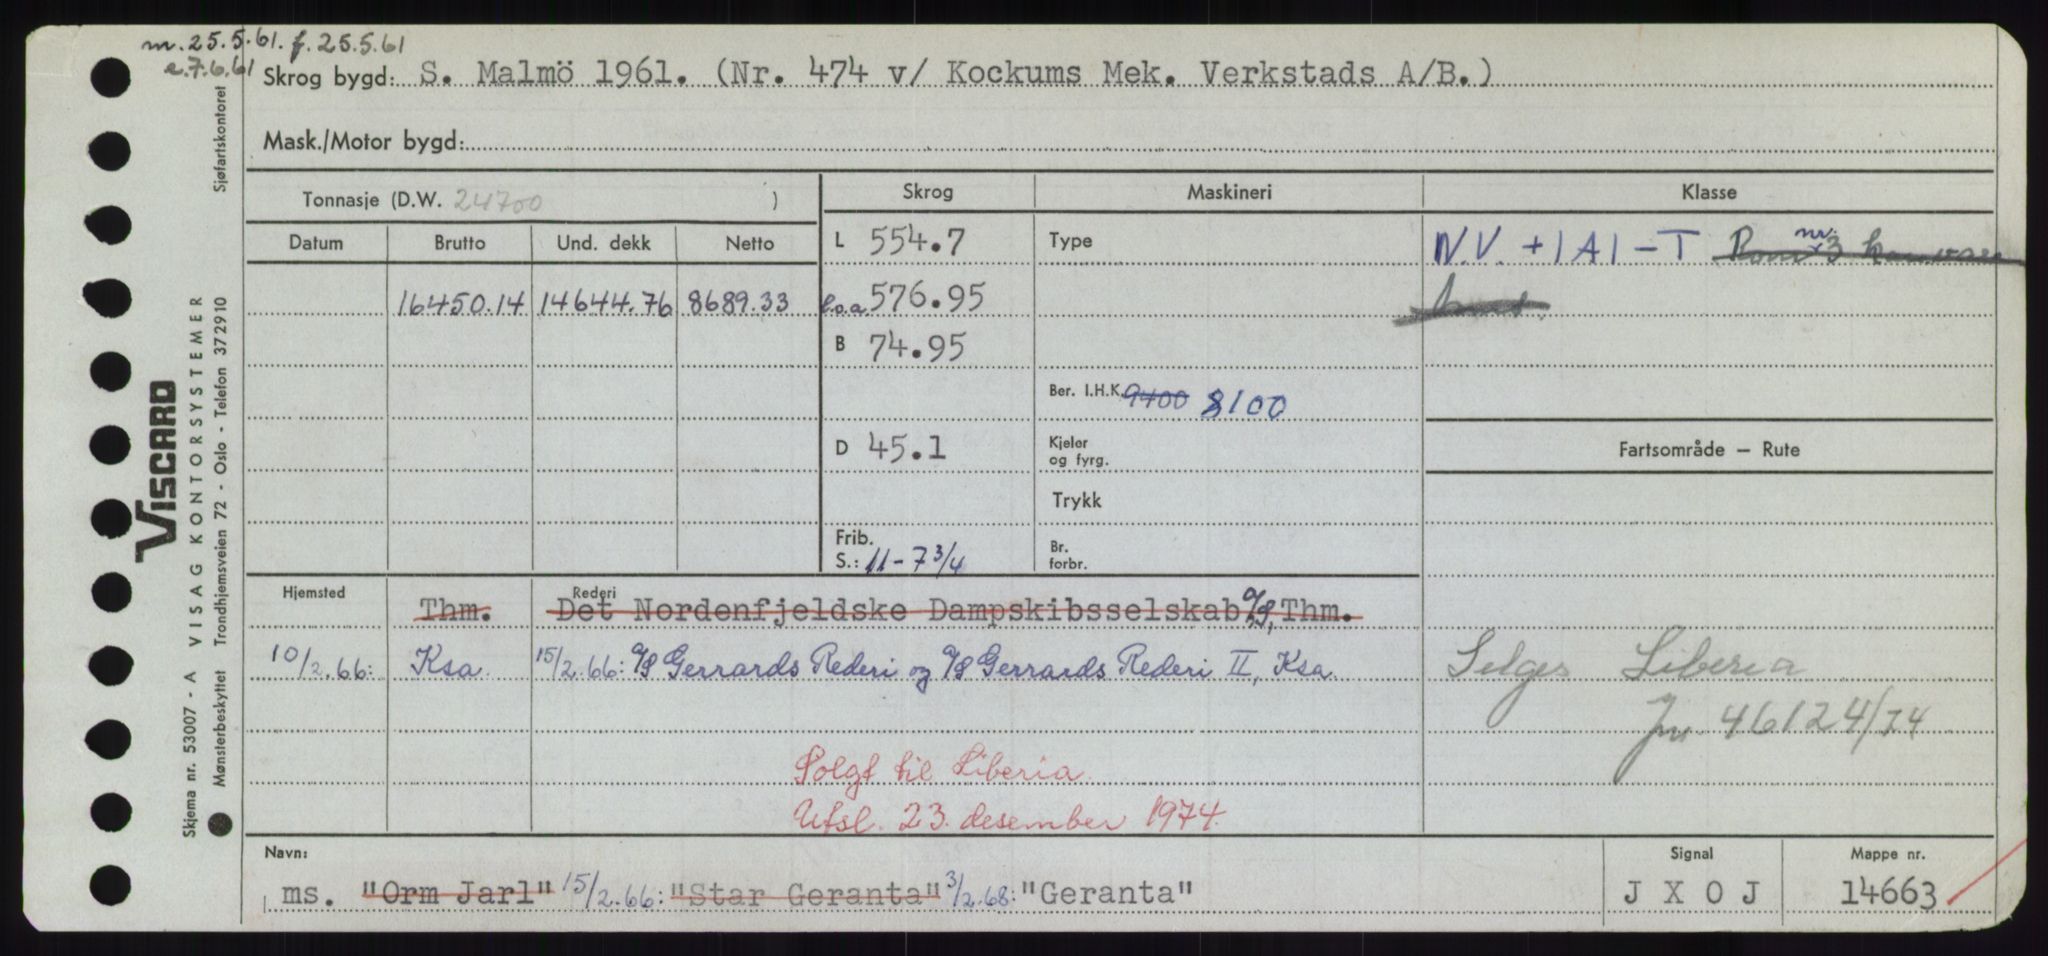 m. 25.5.61. f. 25.5.61
e.7.6.61
Skrog bygd: S. Malmö 1961. (Nr. 474 v/ Kockums Mek. Verkstads A/B.)
Mask./Motor bygd:
Tonnasje (D.W. 24700 )
Skrog
Maskineri
Klasse
Datum Brutto Und. dekk Netto
L 554.7
Type
N.V. +1A1-T nr. 3
16450.14 14644.76 8689.33
l.o.a 576.95
B 74.95
Ber. I.H.K. 9400 8100
D 45.1
Kjeler
og fyrg.
Fartsområde – Rute
Trykk
Frib.
S.: 11-7 3/4
Br.
forbr.
Hjemsted
Rederi
Thm. Det Nordenfjeldske Dampskibsselskab A/S, Thm.
10/2.66: Ksa. 15/2.66: A/S Gerrards Rederi og A/S Gerrards Rederi II, Ksa.
Selges Liberia
Jnr. 46124/74
Solgt til Liberia.
Utsl. 23. desember 1974.
Navn:
ms. "Orm Jarl" 15/2.66: "Star Geranta" 3/2.68: "Geranta"
Signal
J X O J
Mappe nr.
14663
VISCARD
VISAG KONTORSYSTEMER
Skjema nr. 53007 - A
Mønsterbeskyttet
Trondhjemsveien 72 - Oslo - Telefon 372910
Sjøfartskontoret